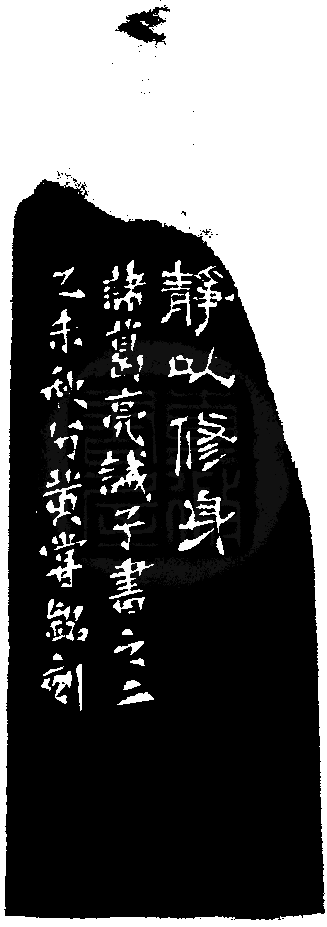 靜以修身
諸葛亮誡子書之二
乙未秋分黃嘗銘刻